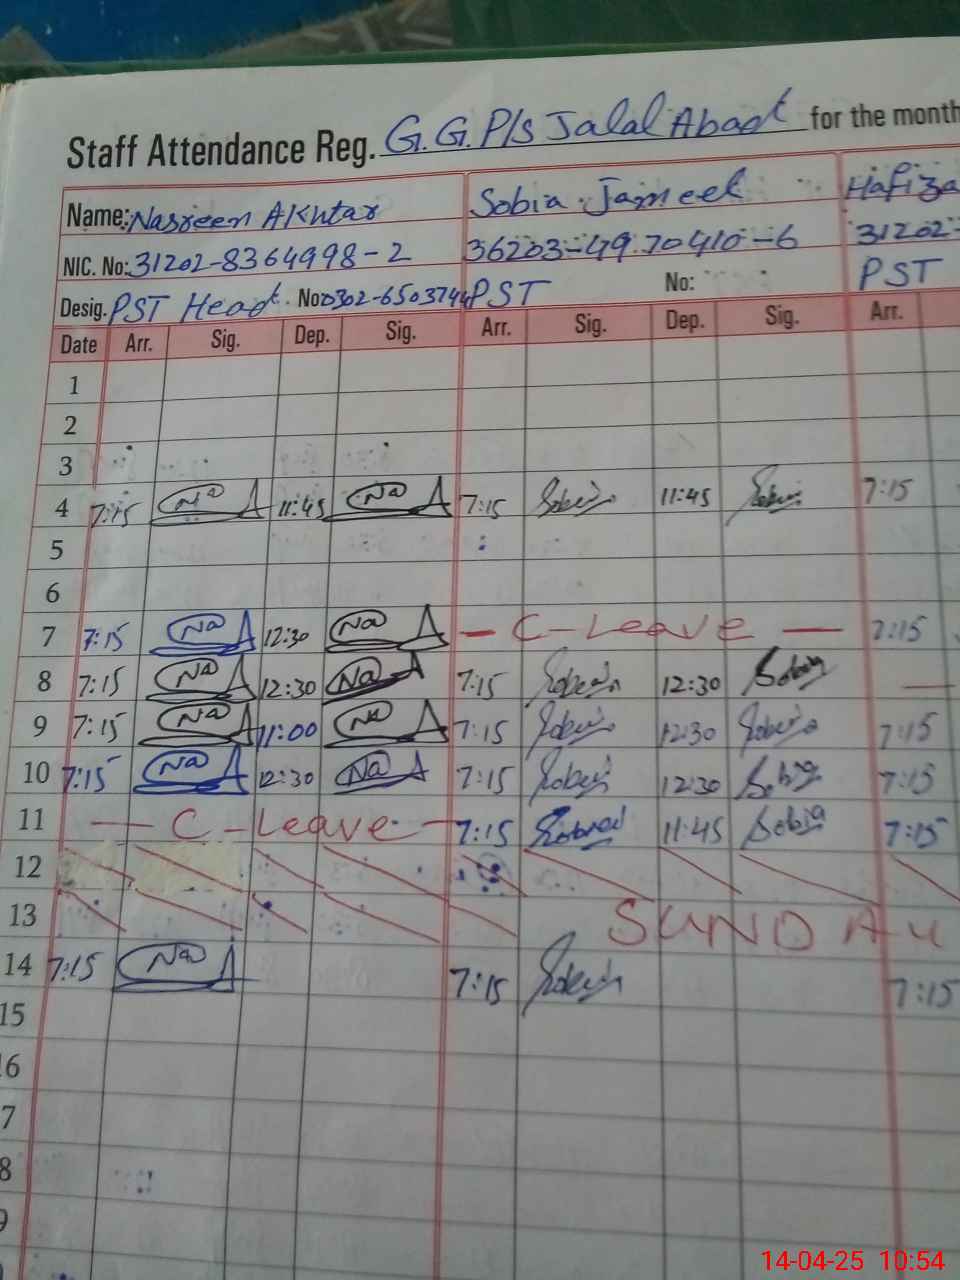 Staff Attendance Reg. G.G.P/s Jalal Abad for the month
Name: Nasreen Akhtar Sobia Jameel Hafiza
NIC. No: 31202-8364998-2 36203-49.70410-6 31202-
Desig. PST Head No: 0302-6503744 PST No: PST
Date Arr. Sig. Dep. Sig. Arr. Sig. Dep. Sig. Arr.
1
2
3
4 7:15 Na A 11:45 Na A 7:15 Sobia 11:45 Sobia 7:15
5
6
7 7:15 Na A 12:30 Na A - C-Leave - 7:15
8 7:15 Na A 12:30 Na A 7:15 Sobia 12:30 Sobia
9 7:15 Na A 11:00 Na A 7:15 Sobia 12:30 Sobia 7:15
10 7:15 Na A 12:30 Na A 7:15 Sobia 12:30 Sobia 7:15
11 - C-Leave - 7:15 Sobia 11:45 Sobia 7:15
12
13 SUNDAY
14 7:15 Na A 7:15 Sobia 7:15
15
16
7
8
9
14-04-25 10:54